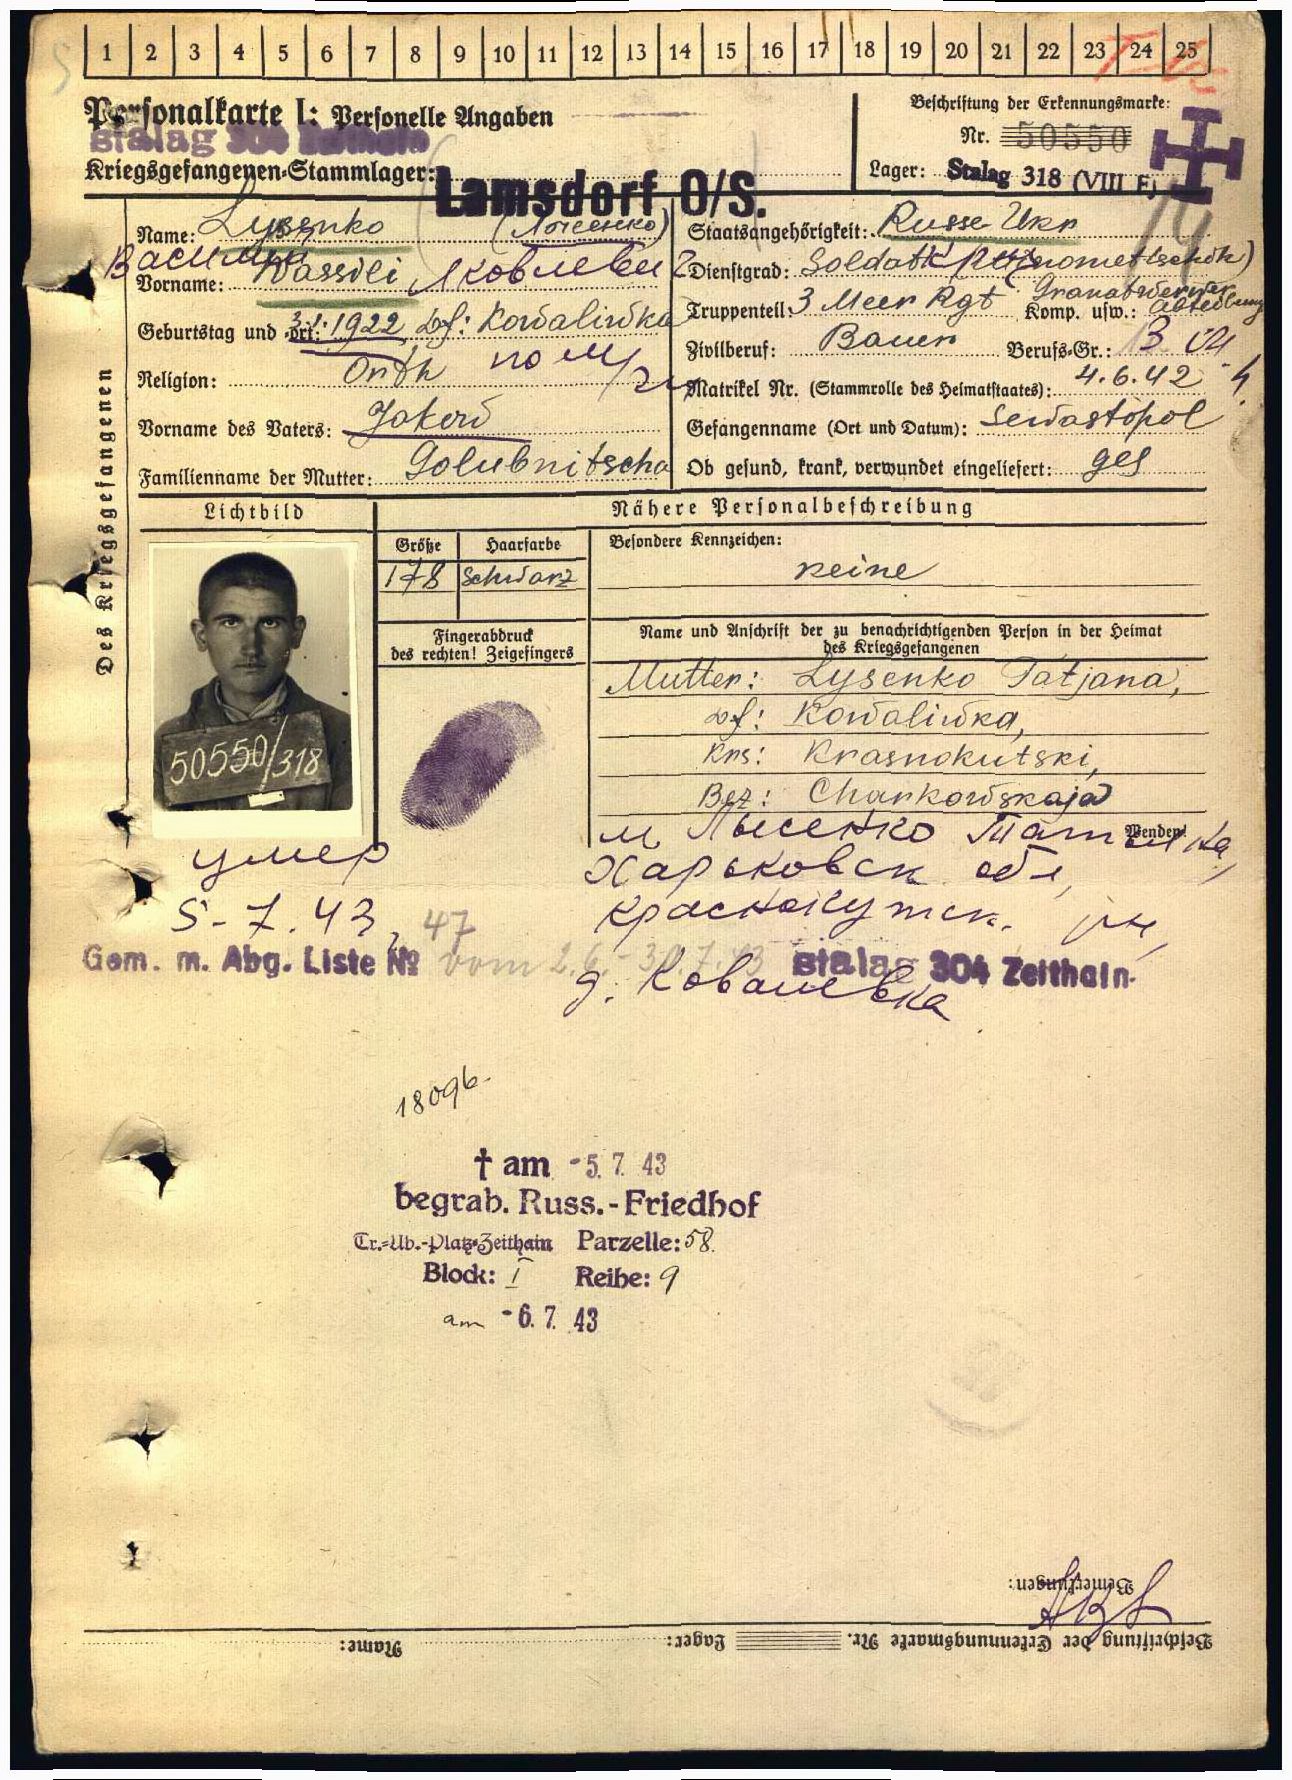 1 2 3 4 5 6 7 8 9 10 11 12 13 14 15 16 17 18 19 20 21 22 23 24 25
Personalkarte I: Personelle Angaben
Stalag 304 Zeithain
Kriegsgefangenen-Stammlager: Lamsdorf O/S.
Beschriftung der Erkennungsmarke:
Nr. 50550
Lager: Stalag 318 (VIII F)
Des Kriegsgefangenen
Name: Lysenko (Лысенко)
Василий
Vorname: Wassili Яковлевич
Geburtstag und -ort: 3.1.1922 Df: Kowaliwka
Religion: Orth
Vorname des Vaters: Jakow
Familienname der Mutter: Golubnitscha
Staatsangehörigkeit: Russe Ukr
Dienstgrad: Soldat
Truppenteil: 3 Meer Rgt Komp. usw.: Granatwerfer
Zivilberuf: Bauer Berufs-Gr.: 13
Matrikel Nr. (Stammrolle des Heimatstaates): 4.6.42
Gefangenname (Ort und Datum): Sewastopol
Ob gesund, krank, verwundet eingeliefert: ges
Lichtbild
Nähere Personalbeschreibung
Größe Haarfarbe
178 Schwarz
Besondere Kennzeichen:
keine
Fingerabdruck
des rechten! Zeigefingers
Name und Anschrift der zu benachrichtigenden Person in der Heimat
des Kriegsgefangenen
50550/318
Mutter: Lysenko Tatjana,
Df: Kowaliwka,
Krs: Krasnokutski,
Bez: Charkowskaja
Wenden!
м Лысенко Татьяна,
Харьковск обл,
Краснокутск. рн,
д. Ковалевка
умер
5-7.43, 47
Gem. m. Abg. Liste № vom 2.6.-30.7.43 Stalag 304 Zeithain.
18096.
† am -5. 7. 43
begrab. Russ.-Friedhof
Tr.-Üb.-Platz-Zeithain Parzelle: 58.
Block: I Reihe: 9
am -6. 7. 43
Bemerkungen:
Beschriftung der Erkennungsmarke Nr. Lager: Name: